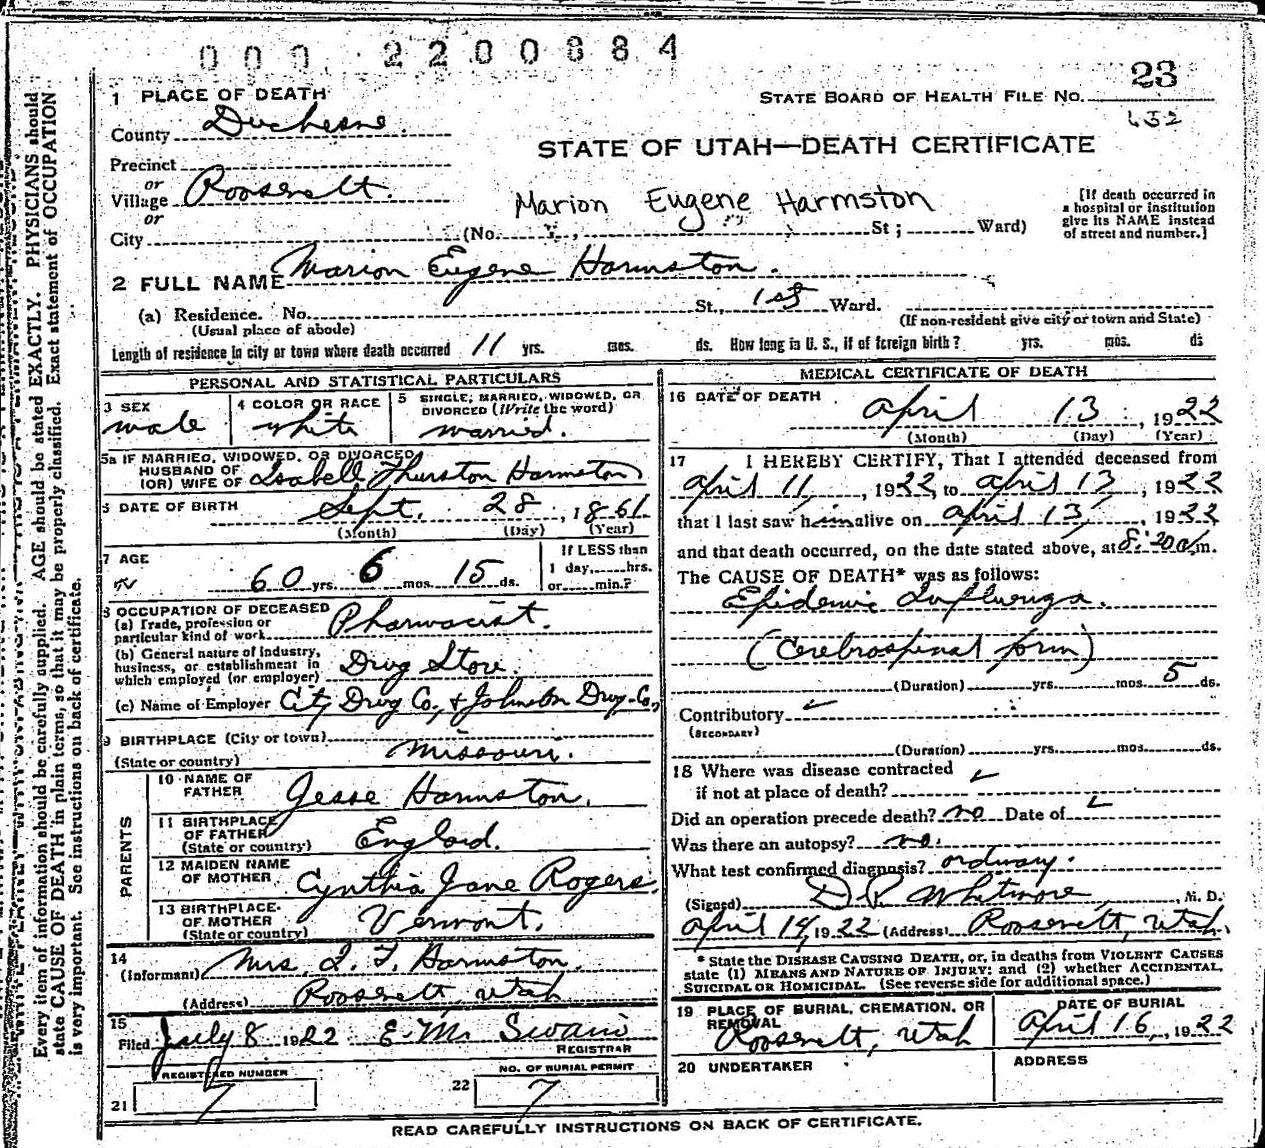 000 2200884
23
1 PLACE OF DEATH
STATE BOARD OF HEALTH FILE NO.
County Duchesne.
STATE OF UTAH—DEATH CERTIFICATE
Precinct
or
Village Roosevelt.
or
City
Marion Eugene Harmston
(No. St; Ward)
[If death occurred in
a hospital or institution
give its NAME instead
of street and number.]
2 FULL NAME Marion Eugene Harmston.
(a) Residence. No. St., 1st Ward.
(Usual place of abode)
(If non-resident give city or town and State)
Length of residence in city or town where death occurred 11 yrs. mos. ds. How long in U. S., if of foreign birth? yrs. mos. ds
PERSONAL AND STATISTICAL PARTICULARS
3 SEX
male
4 COLOR OR RACE
white
5 SINGLE, MARRIED, WIDOWED, OR
DIVORCED (Write the word)
married.
5a IF MARRIED, WIDOWED, OR DIVORCED
HUSBAND OF
(OR) WIFE OF Isabell Thurston Harmston
6 DATE OF BIRTH Sept. 28, 1861.
(Month) (Day) (Year)
7 AGE
60 yrs. 6 mos. 15 ds.
If LESS than
1 day, hrs.
or min.?
8 OCCUPATION OF DECEASED
(a) Trade, profession or
particular kind of work Pharmacist.
(b) General nature of industry,
business, or establishment in
which employed (or employer) Drug Store.
(c) Name of Employer City Drug Co, & Johnston Drug Co,
9 BIRTHPLACE (City or town)
(State or country) Missouri.
PARENTS
10 NAME OF
FATHER Jesse Harmston.
11 BIRTHPLACE
OF FATHER
(State or country) England.
12 MAIDEN NAME
OF MOTHER Cynthia Jane Rogers.
13 BIRTHPLACE
OF MOTHER
(State or country) Vermont.
14
(Informant) Mrs. I. T. Harmston.
(Address) Roosevelt, Utah
15
Filed July 8 1922 E. M. Swain
REGISTRAR
REGISTERED NUMBER
21 7
NO. OF BURIAL PERMIT
22 7
MEDICAL CERTIFICATE OF DEATH
16 DATE OF DEATH April 13, 1922
(Month) (Day) (Year)
17 I HEREBY CERTIFY, That I attended deceased from
April 11, 1922, to April 13, 1922
that I last saw him alive on April 13, 1922
and that death occurred, on the date stated above, at 8:20 a/m.
The CAUSE OF DEATH* was as follows:
Epidemic Influenza.
(Cerebrospinal form)
(Duration) yrs. mos. 5 ds.
Contributory
(SECONDARY)
(Duration) yrs. mos. ds.
18 Where was disease contracted
if not at place of death?
Did an operation precede death? no Date of
Was there an autopsy? no.
What test confirmed diagnosis? ordinary.
(Signed) Whitmore, M. D.
April 14, 1922 (Address) Roosevelt, Utah.
* State the DISEASE CAUSING DEATH, or, in deaths from VIOLENT CAUSES
state (1) MEANS AND NATURE OF INJURY; and (2) whether ACCIDENTAL,
SUICIDAL OR HOMICIDAL. (See reverse side for additional space.)
19 PLACE OF BURIAL, CREMATION, OR
REMOVAL
Roosevelt, Utah
DATE OF BURIAL
April 16, 1922
20 UNDERTAKER
ADDRESS
READ CAREFULLY INSTRUCTIONS ON BACK OF CERTIFICATE.
Every item of information should be carefully supplied. AGE should be stated EXACTLY. PHYSICIANS should
state CAUSE OF DEATH in plain terms, so that it may be properly classified. Exact statement of OCCUPATION
is very important. See instructions on back of certificate.